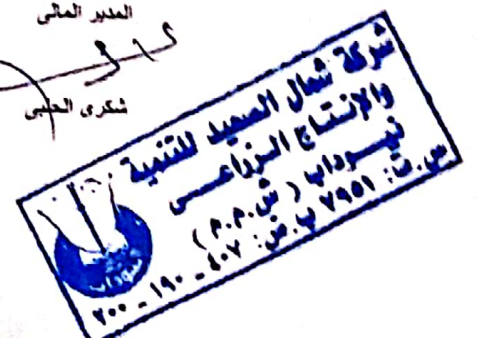 المدير المالى
شكرى الحلبى
شركة شمال الصعيد للتنمية
والإنتاج الزراعى
نيوداب (ش.م.م)
س.ت: ٧٩٥١ ب.ض: ٤٠٧ - ١٩٠ - ٢٠٠
نيوداب